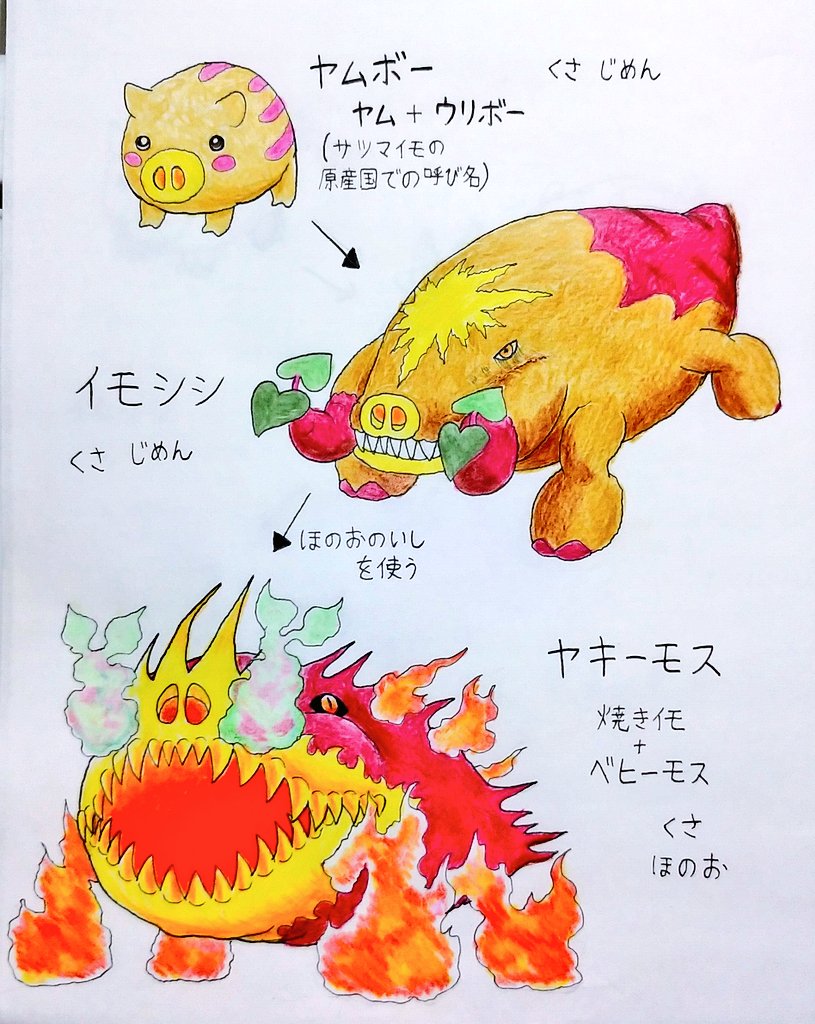 ヤムボー
くさ じめん
ヤム + ウリボー
(サツマイモの
原産国での呼び名)
イモシシ
くさ じめん
ほのおのいし
を使う
ヤキーモス
焼きイモ
+
ベヒーモス
くさ
ほのお